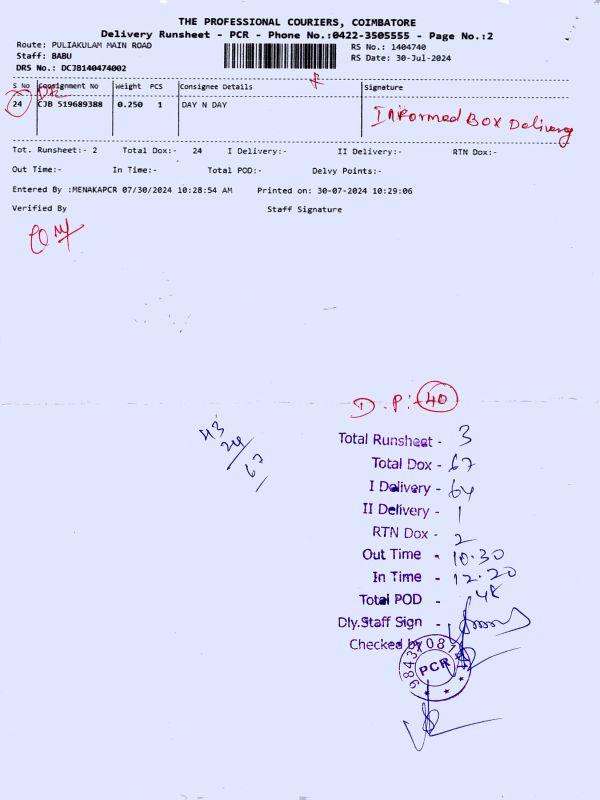 THE PROFESSIONAL COURIERS, COIMBATORE
Delivery Runsheet - PCR - Phone No.:0422-3505555 - Page No.:2
Route: PULIAKULAM MAIN ROAD
Staff: BABU
DRS No.: DCJB140474002
RS No.: 1404740
RS Date: 30-Jul-2024
S No Consignment No Weight PCS Consignee Details Signature
24 CJB 519689388 0.250 1 DAY N DAY
Informed Box Delivery
Tot. Runsheet:- 2 Total Dox:- 24 I Delivery:- II Delivery:- RTN Dox:-
Out Time:- In Time:- Total POD:- Delvy Points:-
Entered By :MENAKAPCR 07/30/2024 10:28:54 AM Printed on: 30-07-2024 10:29:06
Verified By Staff Signature
D.P:- 40
43
24
67
Total Runsheet - 3
Total Dox - 67
I Delivery - 64
II Delivery - 1
RTN Dox - 2
Out Time - 10.30
In Time - 12.20
Total POD -
Dly.Staff Sign -
Checked by
PCR